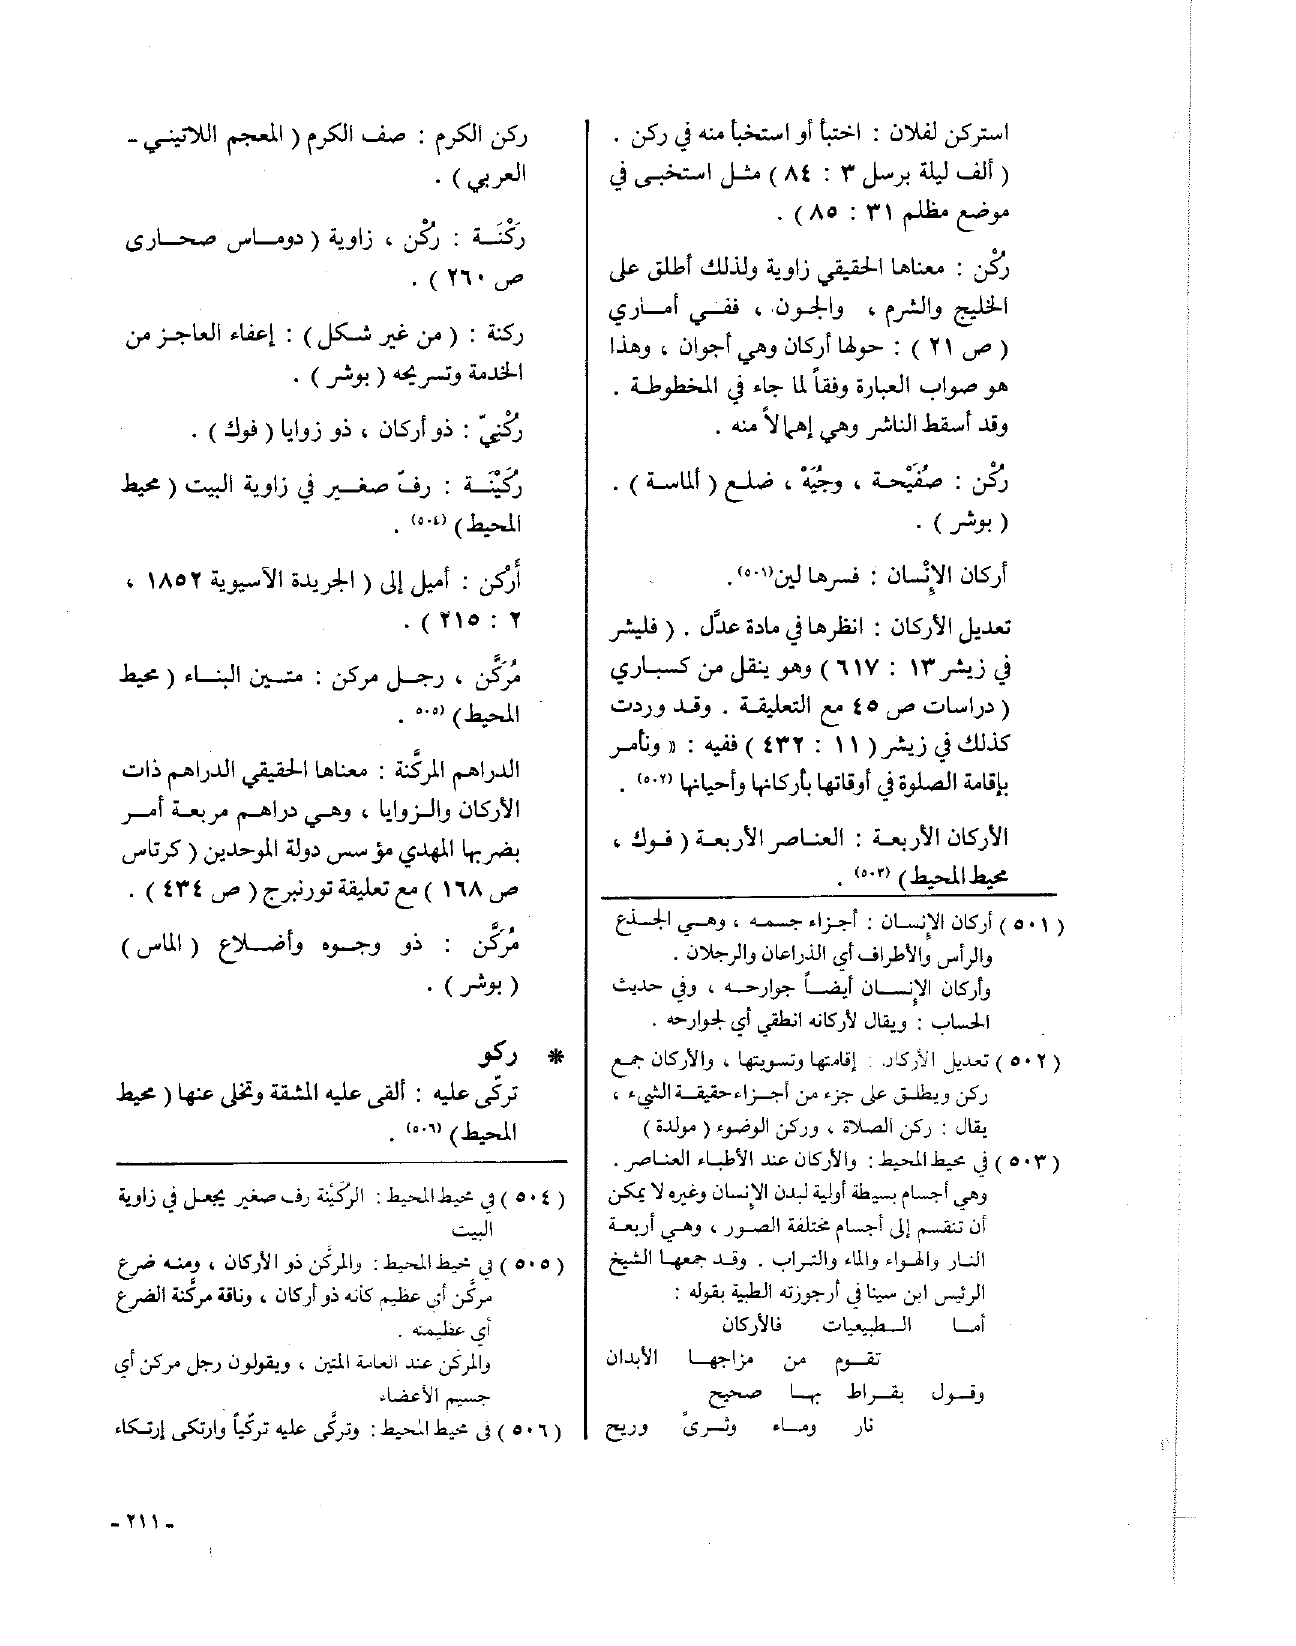 استركن لفلان : اختبأ أو استخبأ منه في ركن .
( ألف ليلة برسل ٣ : ٨٤ ) مثل استخبى في
موضع مظلم ٣١ : ٨٥ ) .
رُكْن : معناها الحقيقي زاوية ولذلك أطلق على
الخليج والشرم ، والجون ، ففي أماري
( ص ٢١ ) : حولها أركان وهي أجوان ، وهذا
هو صواب العبارة وفقاً لما جاء في المخطوطة .
وقد أسقط الناشر وهي إهمالاً منه .
رُكْن : صُفَيْحة ، وجُيَهْ ، ضلع ( ألماسة ) .
( بوشر ) .
أركان الإنْسان : فسرها لين(٥٠١) .
تعديل الأركان : انظرها في مادة عدَّل . ( فليشر
في زيشر ١٣ : ٦١٧ ) وهو ينقل من كسباري
( دراسات ص ٤٥ مع التعليقة . وقد وردت
كذلك في زيشر ( ١١ : ٤٣٢ ) ففيه : « ونأمر
بإقامة الصلوة في أوقاتها بأركانها وأحيانها (٥٠٢) .
الأركان الأربعة : العناصر الأربعة ( فوك ،
محيط المحيط ) (٥٠٣) .
( ٥٠١ ) أركان الإنسان : أجزاء جسمه ، وهي الجذع
والرأس والأطراف أي الذراعان والرجلان .
وأركان الإنسان أيضاً جوارحه ، وفي حديث
الحساب : ويقال لأركانه انطقي أي لجوارحه .
( ٥٠٢ ) تعديل الأركان : إقامتها وتسويتها ، والأركان جمع
ركن ويطلق على جزء من أجزاء حقيقة الشيء ،
يقال : ركن الصلاة ، وركن الوضوء ( مولدة )
( ٥٠٣ ) في محيط المحيط : والأركان عند الأطباء العناصر .
وهي أجسام بسيطة أولية لبدن الإنسان وغيره لا يمكن
أن تنقسم إلى أجسام مختلفة الصور ، وهي أربعة
النار والهواء والماء والتراب . وقد جمعها الشيخ
الرئيس ابن سينا في أرجوزته الطبية بقوله :
أما الطبيعيات فالأركان
تقوم من مزاجها الأبدان
وقول بقراط بها صحيح
نار وماء وثرىً وريح
ركن الكرم : صف الكرم ( المعجم اللاتيني -
العربي ) .
رَكْنَة : رُكْن ، زاوية ( دوماس صحارى
ص ٢٦٠ ) .
ركنة : ( من غير شكل ) : إعفاء العاجز من
الخدمة وتسريحه ( بوشر ) .
رُكْنِيّ : ذو أركان ، ذو زوايا ( فوك ) .
رُكَيْنَة : رفّ صغير في زاوية البيت ( محيط
المحيط ) (٥٠٤) .
أَرْكَن : أميل إلى ( الجريدة الآسيوية ١٨٥٢ ،
٢ : ٢١٥ ) .
مُرَكَّن ، رجل مركن : متين البناء ( محيط
المحيط ) (٥٠٥) .
الدراهم المركَّنة : معناها الحقيقي الدراهم ذات
الأركان والزوايا ، وهي دراهم مربعة أمر
بضربها المهدي مؤسس دولة الموحدين ( كرتاس
ص ١٦٨ ) مع تعليقة تورنبرج ( ص ٤٣٤ ) .
مُرَكَّن : ذو وجوه وأضلاع ( الماس )
( بوشر ) .
* ركو
تركّى عليه : ألقى عليه المشقة وتخلى عنها ( محيط
المحيط ) (٥٠٦) .
( ٥٠٤ ) في محيط المحيط : الركْيْنة رف صغير يجعل في زاوية
البيت
( ٥٠٥ ) في محيط المحيط : والمركَّن ذو الأركان ، ومنه ضرع
مركَّن أي عظيم كأنه ذو أركان ، وناقة مركَّنة الضرع
أي عظيمته .
والمركن عند العامة المتين ، ويقولون رجل مركن أي
جسيم الأعضاء
( ٥٠٦ ) في محيط المحيط : وتركَّى عليه تركّياً وارتكى إرتكاء
- ٢١١ -